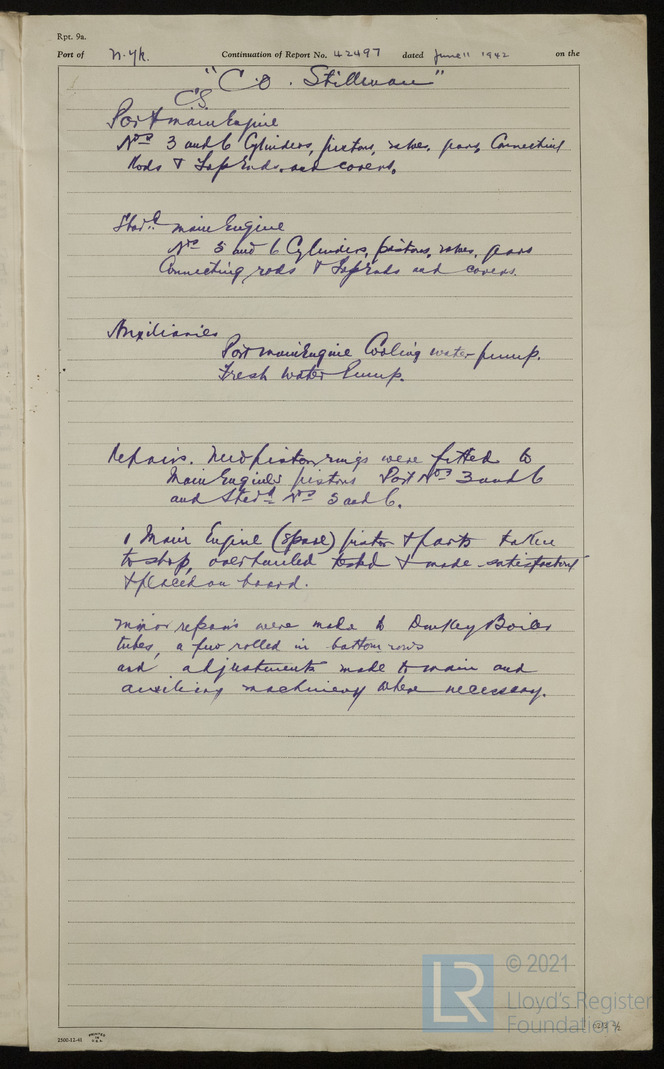 Rpt. 9a.
Port of N. Yk. Continuation of Report No. 42497 dated June 11 1942 on the
"C.O. Stillman"
C.S.
Port main Engine
Nos 3 and 6 Cylinders, pistons, valves, gears, Connecting
Rods & Top Ends and covers.
Starbd main Engine
Nos 5 and 6 Cylinders, pistons, valves, gears
Connecting rods & Top Ends and covers.
Auxiliaries
Port main Engine Cooling water pump.
Fresh water Pump.
Repairs. New piston rings were fitted to
Main Engines pistons Port Nos 3 and 6
and Starbd Nos 5 and 6.
1 Main Engine (spare) piston & parts taken
to shop, overhauled tested & made satisfactory
& placed on board.
Minor repairs were made to Donkey Boiler
tubes, a few rolled in bottom rows
and adjustments made to main and
auxiliary machinery where necessary.
© 2021
LR
Lloyd's Register
Foundation
2500-12-41
PRINTED